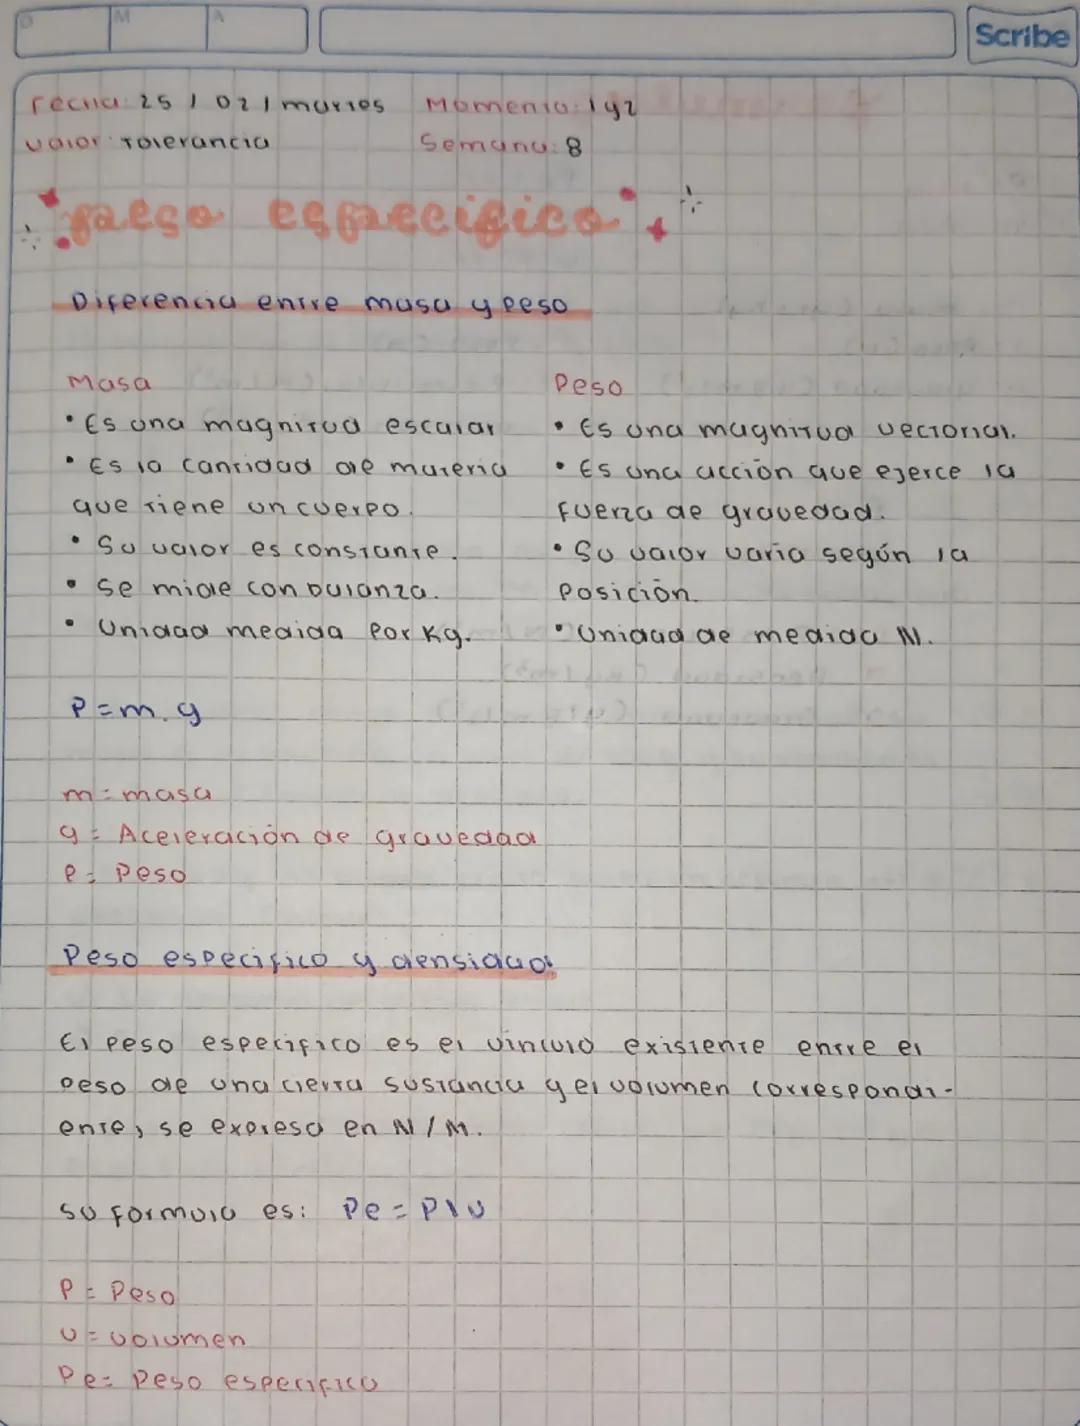 D M A
Scribe
Fecha: 25 / 02 / martes Momento: 1 y 2
Valor: Tolerancia Semana: 8
peso especifico
Diferencia entre masa y peso
Masa
• Es una magnitud escalar
• Es la cantidad de materia
que tiene un cuerpo.
• Su valor es constante.
• Se mide con balanza.
• Unidad medida por Kg.
Peso
• Es una magnitud vectorial.
• Es una acción que ejerce la
fuerza de gravedad.
• Su valor varia según la
posición.
• Unidad de medida N.
P = m . g
m = masa
g = Aceleración de gravedad
P = Peso
Peso especifico y densidad:
El peso especifico es el vinculo existente entre el
peso de una cierta sustancia y el volumen correspondi-
ente, se expresa en N / M.
su formula es: Pe = P \ V
P = Peso
V = volumen
Pe = Peso especifico